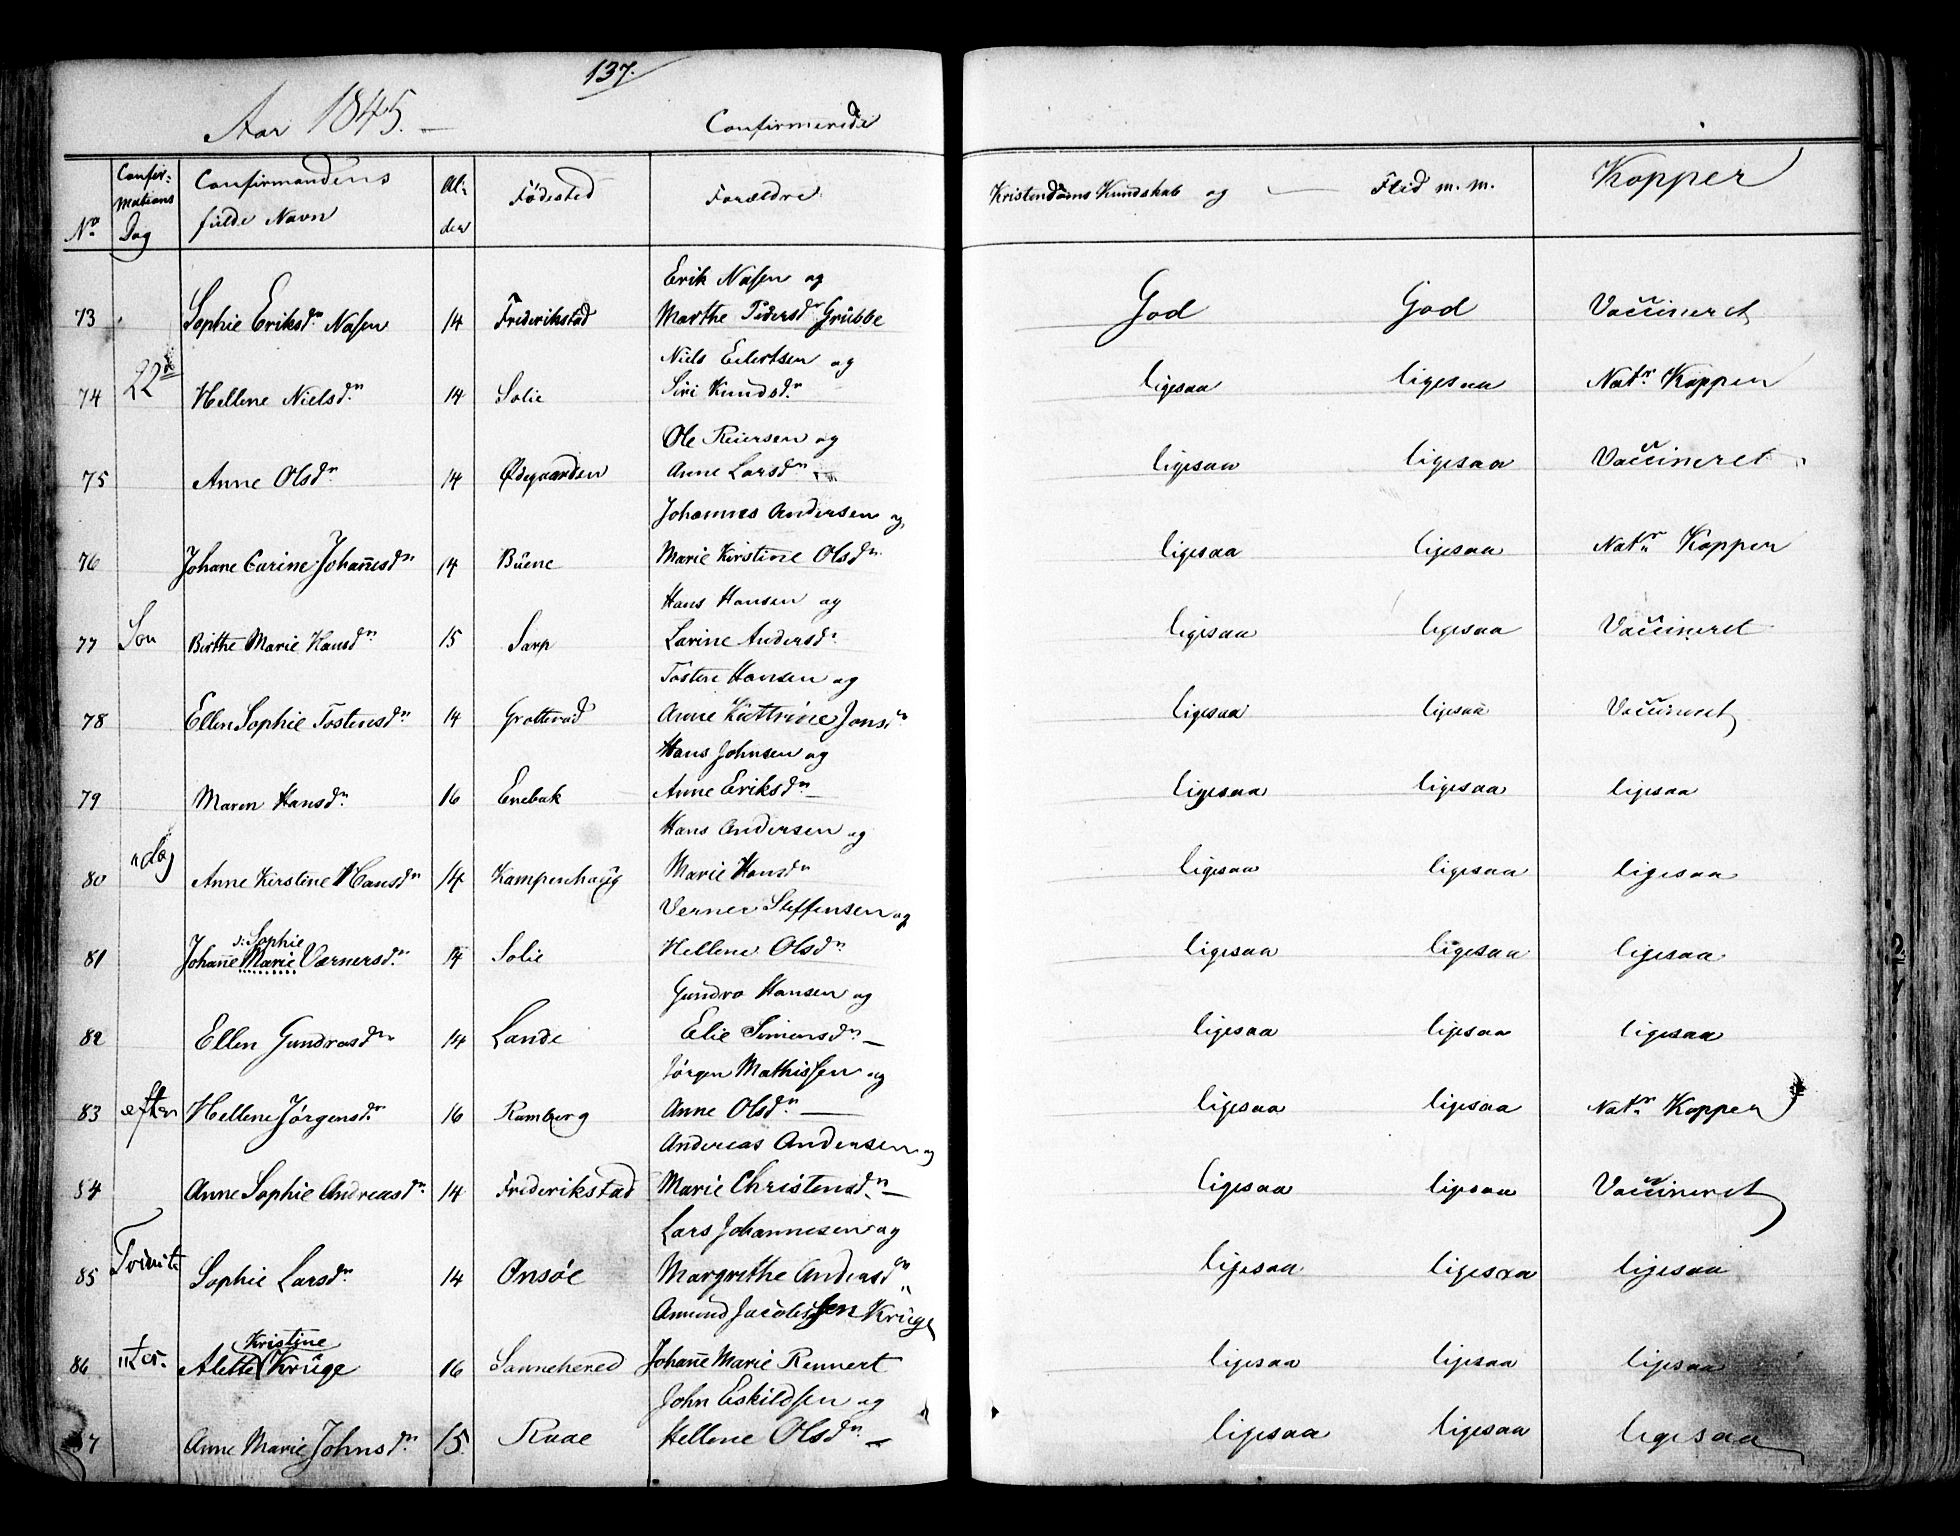 137.
Aar 1845. Confirmerede
No Confir-mations Dag Confirmandens fulde Navn Al-der Fødested Forældre Kristendoms Kundskab og Flid m. m. Kopper
Erik Nasen og
73 Sophie Eriksdr Nasen 14 Frederikstad Marthe Pedersdr Grübbe God God Vaccineret
Niels Eilertsen og
74 22de Hellene Nielsdr 14 Solie Siri Knudsdr ligesaa ligesaa Natr Kopper
Ole Reiersen og
75 Anne Olsdr 14 Ødegaarden Anne Larsdr ligesaa ligesaa Vaccineret
Johannes Andersen og
76 Johane Carine Johañesdr 14 Büene Marie Kirstine Olsdr ligesaa ligesaa Natr Kopper
Hans Hansen og
77 Søn Birthe Marie Hansdr 15 Sarp Larine Andersdr ligesaa ligesaa Vaccineret
Tosten Hansen og
78 Ellen Sophie Tostensdr 14 Grottevad Anne Kattrine Jonsdr ligesaa ligesaa Vaccineret
Hans Johnsen og
79 Maren Hansdr 16 Enebak Anne Eriksdr ligesaa ligesaa ligesaa
Hans Andersen og
80 dag Anne Kirstine Hansdr 14 Kampenhaug Marie Hansdr ligesaa ligesaa ligesaa
Verner Steffensen og
Sophie
81 Johañe Marie Værnersdr 14 Solie Hellene Olsdr ligesaa ligesaa ligesaa
Gundro Hansen og
82 Ellen Gundrosdr 14 Lande Elie Simensdr ligesaa ligesaa ligesaa
Jørgen Mathissen og
83 efter Hellene Jørgensdr 16 Ramberg Anne Olsdr ligesaa ligesaa Natr Kopper
Andreas Andersen og
84 Anne Sophie Andreasdr 14 Frederikstad Marie Christensdr ligesaa ligesaa Vaccineret
Lars Johannesen og
85 Trinita Sophie Larsdr 14 Onsøe Margrethe Andersdr ligesaa ligesaa ligesaa
Amund Jacobssen Krüge
Kristine
86 tis. Alette Krüge 16 Sannehered Johañe Marie Rennert ligesaa ligesaa ligesaa
John Eskildsen og
87 Anne Marie Johnsdr 15 Raae Hellene Olsdr ligesaa ligesaa ligesaa